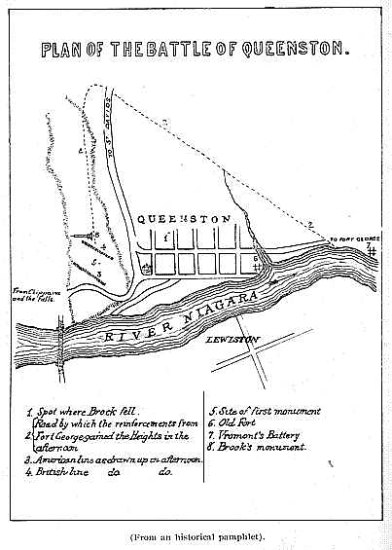 PLAN OF THE BATTLE OF QUEENSTON.
TO ST DAVIDS
2
2
8
4
5
3
QUEENSTON
1
6
2
TO FORT GEORGE
7
From Chippawa
and the Falls.
RIVER NIAGARA
LEWISTON
1. Spot where Brock fell.
Road by which the reinforcements from
2 Fort George gained the Heights in the
afternoon
3. American line as drawn up in afternoon.
4. British line do. do.
5. Site of first monument
6. Old Fort
7 Vromont's Battery
8. Brock's monument.
(From an historical pamphlet).